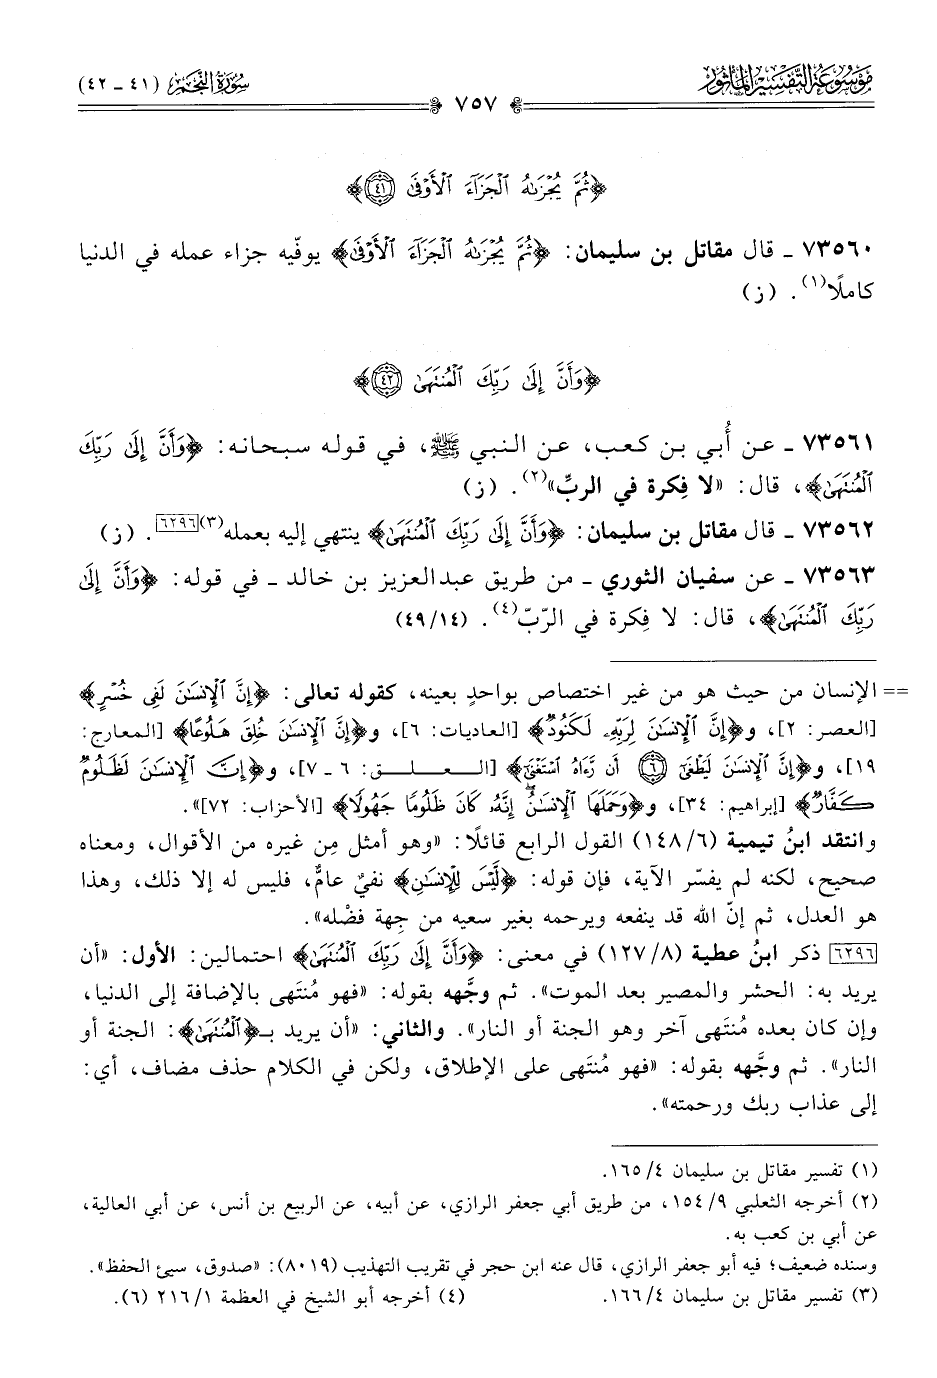 موسوعة التفسير المأثور
سورة النجم (٤١ ـ ٤٢)
٧٥٧
﴿ثُمَّ يُجْزَىٰهُ ٱلْجَزَآءَ ٱلْأَوْفَىٰ ٤١﴾
٧٣٥٦٠ ـ قال مقاتل بن سليمان: ﴿ثُمَّ يُجْزَىٰهُ ٱلْجَزَآءَ ٱلْأَوْفَىٰ﴾ يوفّيه جزاء عمله في الدنيا
كاملًا(١). (ز)
﴿وَأَنَّ إِلَىٰ رَبِّكَ ٱلْمُنتَهَىٰ ٤٢﴾
٧٣٥٦١ ـ عن أُبي بن كعب، عن النبي ﷺ، في قوله سبحانه: ﴿وَأَنَّ إِلَىٰ رَبِّكَ
ٱلْمُنتَهَىٰ﴾، قال: «لا فِكرة في الربِّ»(٢). (ز)
٧٣٥٦٢ ـ قال مقاتل بن سليمان: ﴿وَأَنَّ إِلَىٰ رَبِّكَ ٱلْمُنتَهَىٰ﴾ ينتهي إليه بعمله(٣)[٦٢٩٦]. (ز)
٧٣٥٦٣ ـ عن سفيان الثوري ـ من طريق عبدالعزيز بن خالد ـ في قوله: ﴿وَأَنَّ إِلَىٰ
رَبِّكَ ٱلْمُنتَهَىٰ﴾، قال: لا فِكرة في الرّبّ(٤). (٤٩/١٤)
== الإنسان من حيث هو من غير اختصاص بواحدٍ بعينه، كقوله تعالى: ﴿إِنَّ ٱلْإِنسَٰنَ لَفِى خُسْرٍ﴾
[العصر: ٢]، و﴿إِنَّ ٱلْإِنسَٰنَ لِرَبِّهِۦ لَكَنُودٌ﴾ [العاديات: ٦]، و﴿إِنَّ ٱلْإِنسَٰنَ خُلِقَ هَلُوعًا﴾ [المعارج:
١٩]، و﴿إِنَّ ٱلْإِنسَٰنَ لَيَطْغَىٰٓ ٦ أَن رَّءَاهُ ٱسْتَغْنَىٰٓ﴾ [العلق: ٦ ـ ٧]، و﴿إِنَّ ٱلْإِنسَٰنَ لَظَلُومٌ
كَفَّارٌ﴾ [إبراهيم: ٣٤]، و﴿وَحَمَلَهَا ٱلْإِنسَٰنُ إِنَّهُۥ كَانَ ظَلُومًا جَهُولًا﴾ [الأحزاب: ٧٢]».
وانتقد ابنُ تيمية (١٤٨/٦) القول الرابع قائلًا: «وهو أمثل مِن غيره من الأقوال، ومعناه
صحيح، لكنه لم يفسّر الآية، فإن قوله: ﴿لَّيْسَ لِلْإِنسَٰنِ﴾ نفيٌ عامٌّ، فليس له إلا ذلك، وهذا
هو العدل، ثم إنّ الله قد ينفعه ويرحمه بغير سعيه من جِهة فضْله».
[٦٢٩٦] ذكر ابنُ عطية (١٢٧/٨) في معنى: ﴿وَأَنَّ إِلَىٰ رَبِّكَ ٱلْمُنتَهَىٰ﴾ احتمالين: الأول: «أن
يريد به: الحشر والمصير بعد الموت». ثم وجَّهه بقوله: «فهو مُنتَهى بالإضافة إلى الدنيا،
وإن كان بعده مُنتَهى آخر وهو الجنة أو النار». والثاني: «أن يريد بـ﴿ٱلْمُنتَهَىٰ﴾: الجنة أو
النار». ثم وجَّهه بقوله: «فهو مُنتَهى على الإطلاق، ولكن في الكلام حذف مضاف، أي:
إلى عذاب ربك ورحمته».
(١) تفسير مقاتل بن سليمان ١٦٥/٤.
(٢) أخرجه الثعلبي ١٥٤/٩، من طريق أبي جعفر الرازي، عن أبيه، عن الربيع بن أنس، عن أبي العالية،
عن أبي بن كعب به.
وسنده ضعيف؛ فيه أبو جعفر الرازي، قال عنه ابن حجر في تقريب التهذيب (٨٠١٩): «صدوق، سيئ الحفظ».
(٣) تفسير مقاتل بن سليمان ١٦٦/٤. (٤) أخرجه أبو الشيخ في العظمة ٢١٦/١ (٦).